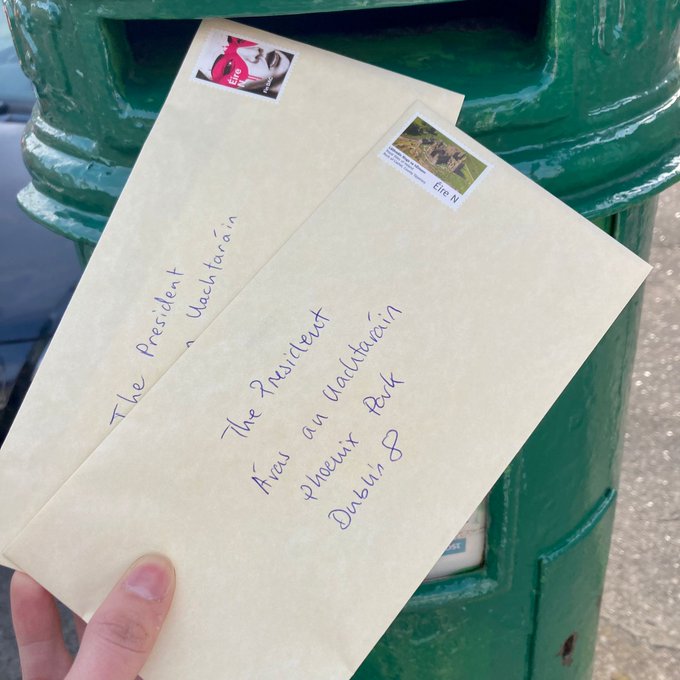 Éire N
The President
Uachtaráin
Éire N
The President
Áras an Uachtaráin
Phoenix Park
Dublin 8